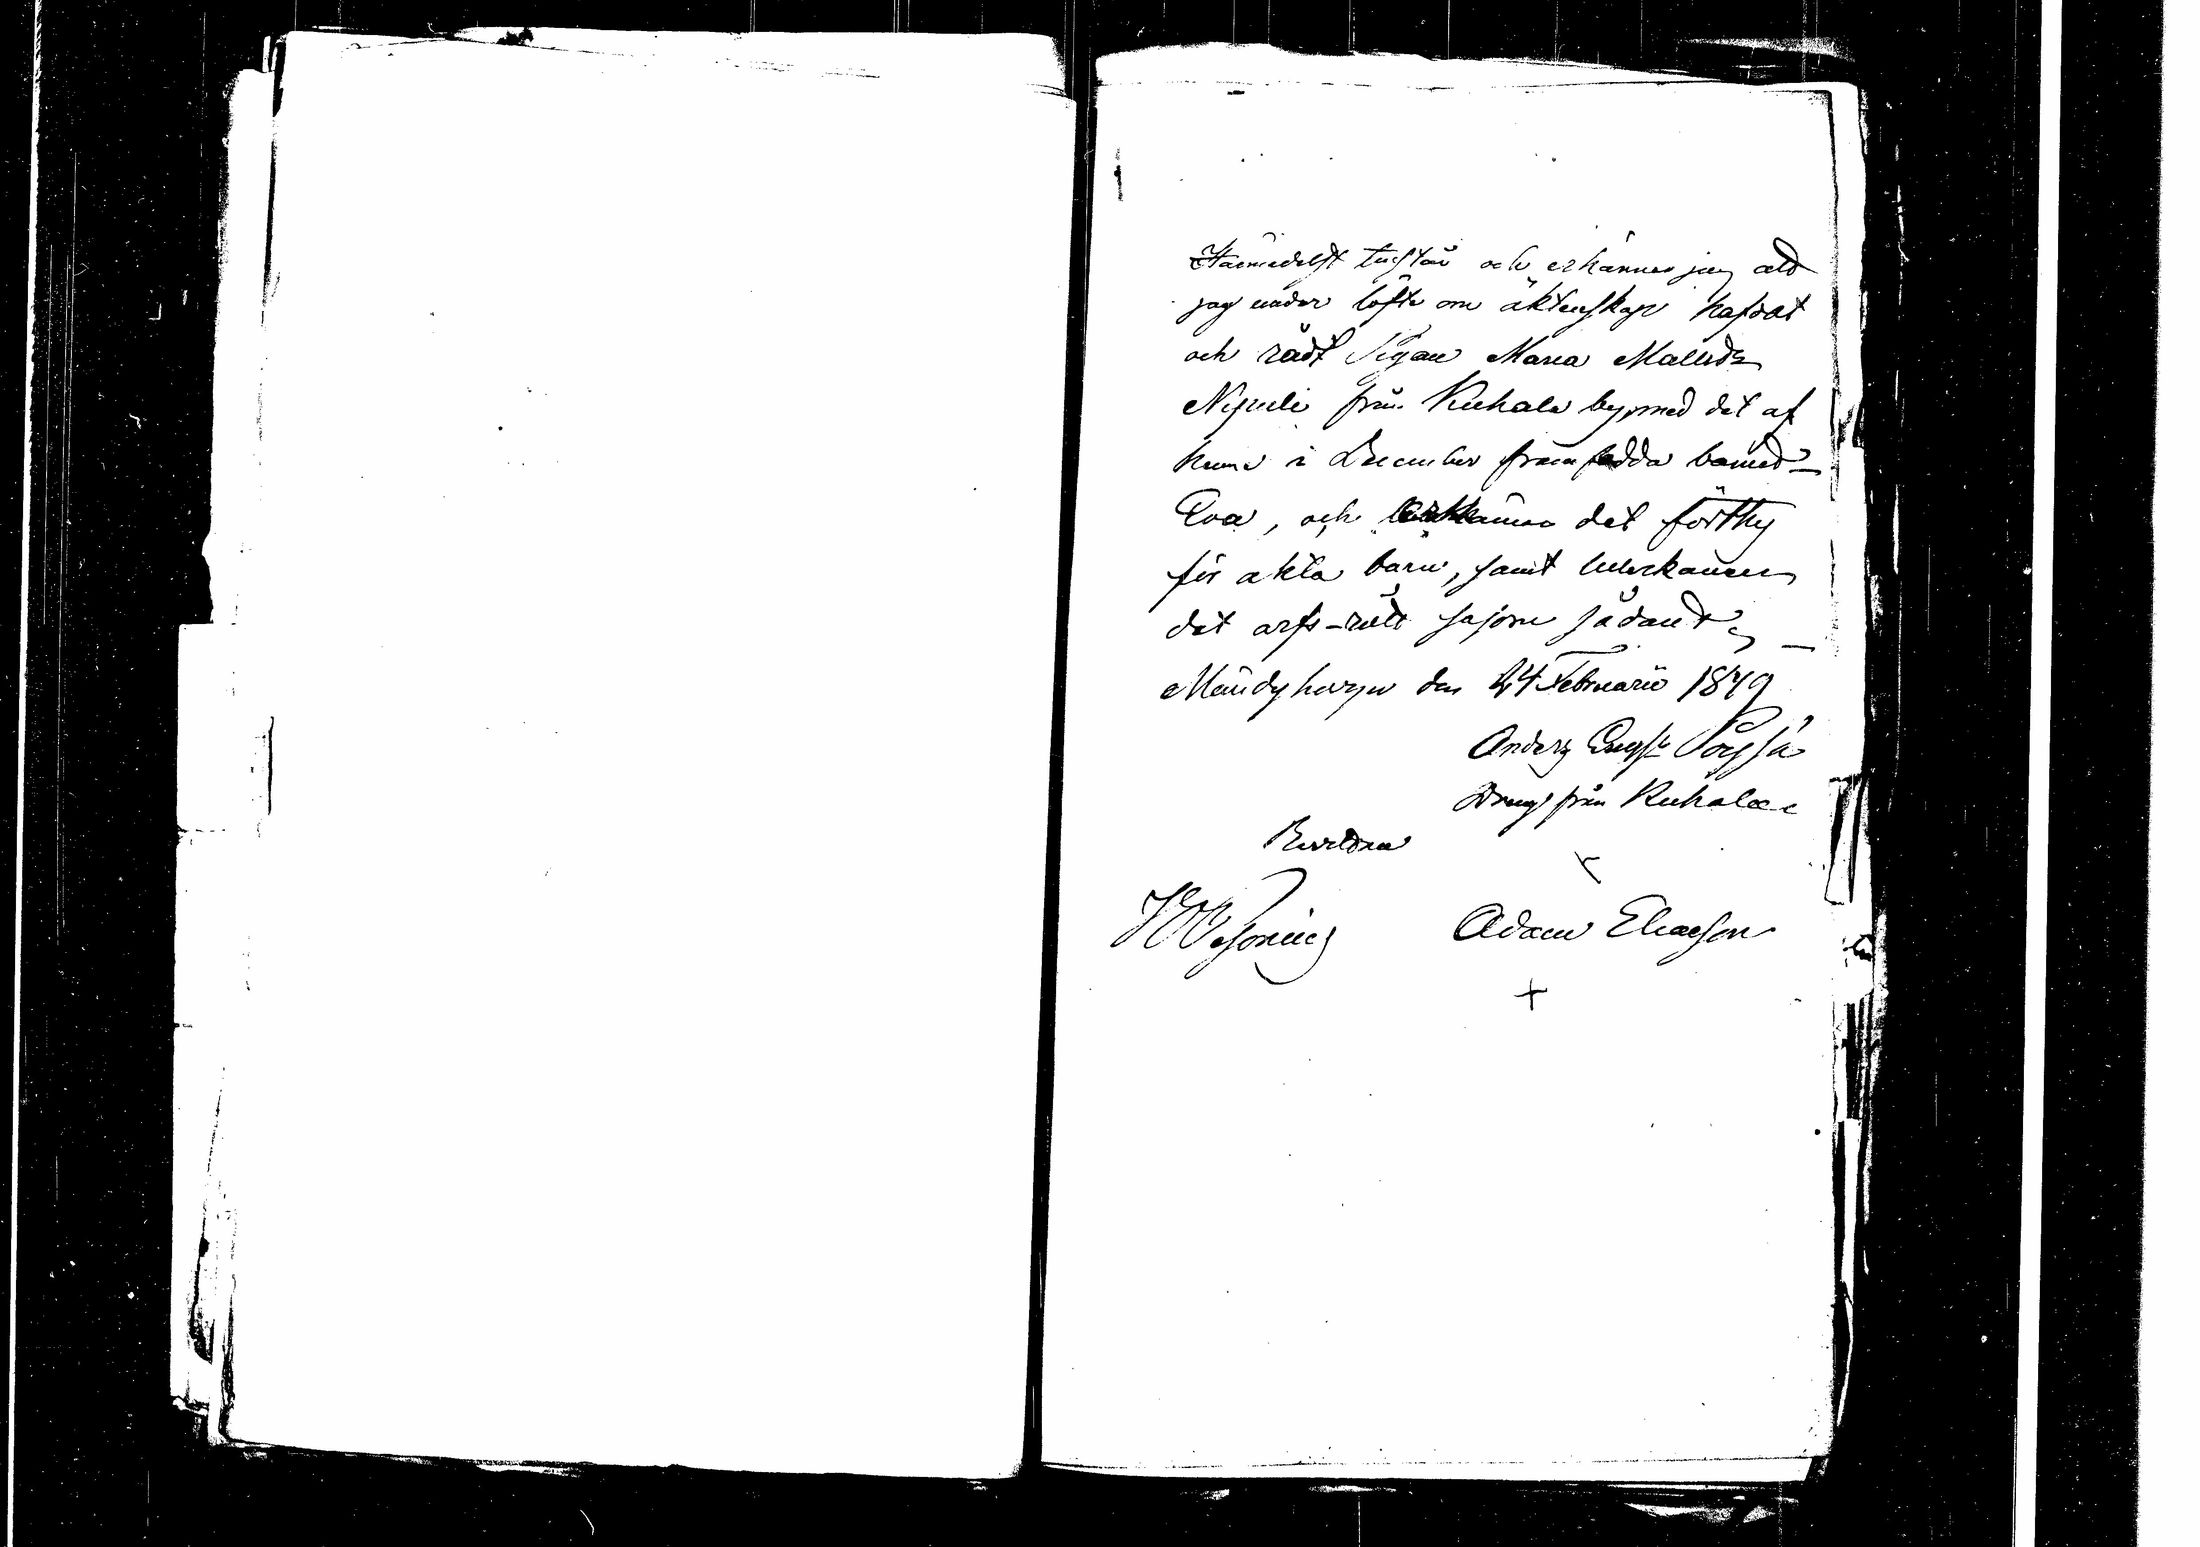 Härmedelst tillstår och erkänner jag att
jag under löfte om äktenskap häfdat
och rådt Pigan Maria
från Kuhala by, med det af
henne i December framfödda barnet
Eva, och erkänner det förthy
för äkta barn, samt tillerkänner
det arfs-rätt såsom sådant,
den 24 Februarii 1849
Anders
Dreng från Kuhala
Bevittna
Adam Eliasson
+